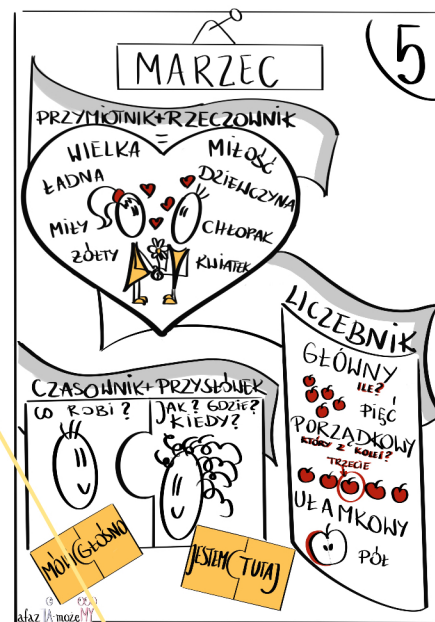 MARZEC
5
PRZYMIOTNIK+RZECZOWNIK
=
WIELKA MIŁOŚĆ
ŁADNA DZIEWCZYNA
MIŁY CHŁOPAK
ŻÓŁTY KWIATEK
LICZEBNIK
GŁÓWNY
ILE?
PIĘĆ
PORZĄDKOWY
KTÓRY Z KOLEI?
TRZECIE
UŁAMKOWY
PÓŁ
CZASOWNIK+PRZYSŁÓWEK
CO ROBI?
JAK? GDZIE?
KIEDY?
MÓWI GŁOŚNO
JESTEM TUTAJ
afaz JA-może MY